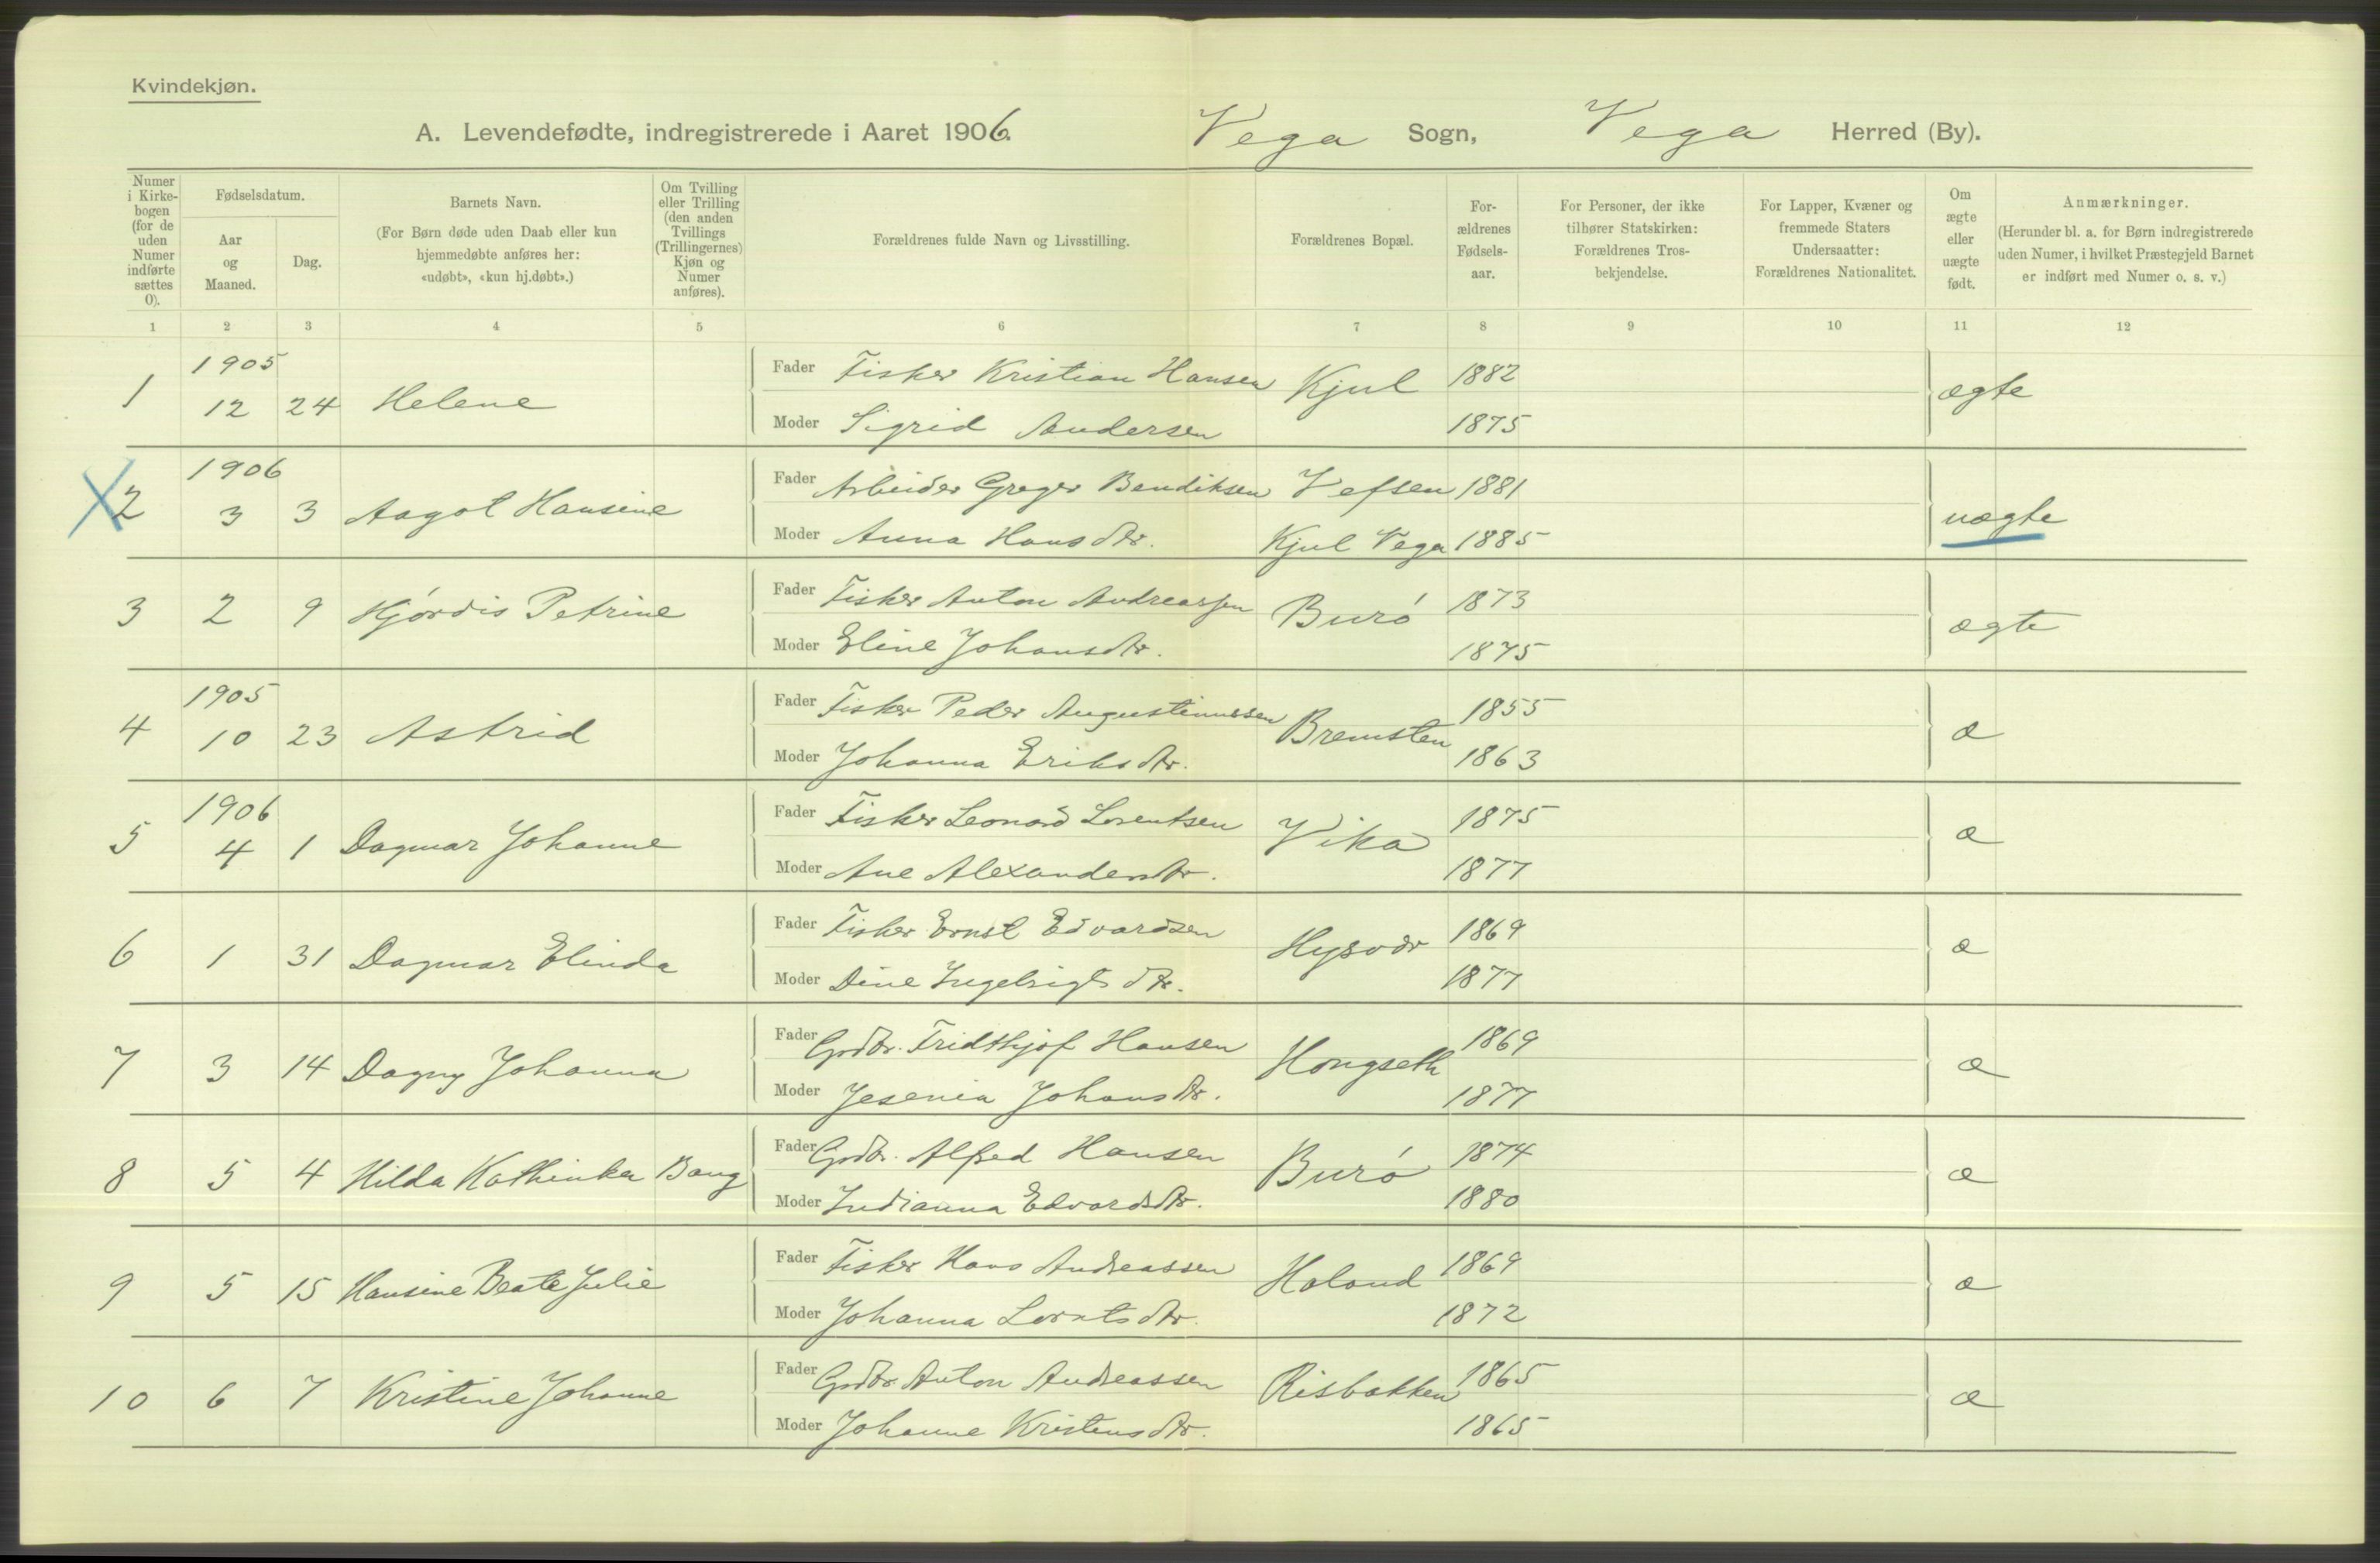 Kvindekjøn.
A. Levendefødte, indregistrerede i Aaret 1906. Vega Sogn, Vega Herred (By).
Numer i Kirkebogen (for de uden Numer indførte sættes 0).
Fødselsdatum.
Aar og Maaned.
Dag.
Barnets Navn.
(For Børn døde uden Daab eller kun hjemmedøbte anføres her: «udøbt», «kun hj.døbt».)
Om Tvilling eller Trilling (den anden Tvillings (Trillingernes) Kjøn og Numer anføres).
Forældrenes fulde Navn og Livsstilling.
Forældrenes Bopæl.
Forældrenes Fødselsaar.
For Personer, der ikke tilhører Statskirken: Forældrenes Trosbekjendelse.
For Lapper, Kvæner og fremmede Staters Undersaatter: Forældrenes Nationalitet.
Om ægte eller uægte født.
Anmærkninger.
(Herunder bl. a. for Børn indregistrerede uden Numer, i hvilket Præstegjeld Barnet er indført med Numer o. s. v.)
1 2 3 4 5 6 7 8 9 10 11 12
1905
Fader Fisker Kristian Hansen Kjul 1882
1 12 24 Helene ægte
Moder Sigrid Andersen 1875
1906
Fader Arbeider Greger Bendiksen Vefsen 1881
X 2 3 3 Aagot Hansine uægte
Moder Anna Hansdtr. Kjul Vega 1885
Fader Fisker Anton Andreassen Burö 1873
3 2 9 Hjördis Petrine ægte
Moder Eline Johansdtr. 1875
1905
Fader Fisker Peder Augustinussen Bremsten 1855
4 10 23 Astrid æ
Moder Johanna Eriksdtr. 1863
1906
Fader Fisker Leonard Lorentsen Vika 1875
5 4 1 Dagmar Johanne æ
Moder Ane Alexandersdtr. 1877
Fader Fisker Ernst Edvardsen Hysvær 1869
6 1 31 Dagmar Elinda æ
Moder Dine Ingebrigtsdtr. 1877
Fader Grdbr. Fridthjof Hansen Hongseth 1869
7 3 14 Dagny Johanna æ
Moder Jesenia Johansdtr. 1877
Fader Grdbr. Alfred Hansen Burö 1874
8 5 4 Hilda Kathinka Bang æ
Moder Indianna Edvardsdtr. 1880
Fader Fisker Hans Andreassen Haland 1869
9 5 15 Hansine Beate Julie æ
Moder Johanna Lorntsdtr. 1872
Fader Grdbr. Anton Andreassen Risbakken 1865
10 6 7 Kristine Johanne æ
Moder Johanne Kristensdtr. 1865